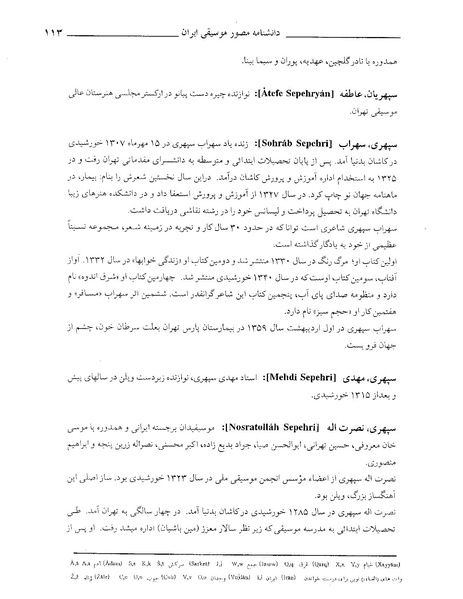 دانشنامه مصور موسیقی ایران ۱۱۳
همدوره با نادر گلچین، عهدیه، پوران و سیما بینا.
سپهریان، عاطفه [Átefe Sepehryán]: نوازنده چیره دست پیانو در ارکستر مجلسی هنرستان عالی
موسیقی تهران.
سپهری، سهراب [Sohráb Sepehri]: زنده یاد سهراب سپهری در ۱۵ مهرماه ۱۳۰۷ خورشیدی
در کاشان بدنیا آمد. پس از پایان تحصیلات ابتدائی و متوسطه به دانشسرای مقدماتی تهران رفت و در
۱۳۲۵ به استخدام اداره آموزش و پرورش کاشان درآمد. در این سال نخستین شعرش را بنام: بیمار، در
ماهنامه جهان نو چاپ کرد. در سال ۱۳۲۷ از آموزش و پرورش استعفا داد و در دانشکده هنرهای زیبا
دانشگاه تهران به تحصیل پرداخت و لیسانس خود را در رشته نقاشی دریافت داشت.
سهراب سپهری شاعری است توانا که در حدود ۳۰ سال کار و تجربه در زمینه شعر، مجموعه نسبتاً
عظیمی از خود به یادگار گذاشته است.
اولین کتاب او: مرگ رنگ در سال ۱۳۳۰ منتشر شد و دومین کتاب او «زندگی خوابها» در سال ۱۳۳۲. آواز
آفتاب، سومین کتاب اوست که در سال ۱۳۴۰ خورشیدی منتشر شد. چهارمین کتاب او «شرق اندوه» نام
دارد و منظومه صدای پای آب، پنجمین کتاب این شاعر گرانقدر است. ششمین اثر سهراب «مسافر» و
هفتمین کار او «حجم سبز» نام دارد.
سهراب سپهری در اول اردیبهشت سال ۱۳۵۹ در بیمارستان پارس تهران بعلت سرطان خون، چشم از
جهان فرو بست.
سپهری، مهدی [Mehdi Sepehri]: استاد مهدی سپهری، نوازنده زبردست ویلن در سالهای پیش
و بعد از ۱۳۱۵ خورشیدی.
سپهری، نصرت اله [Nosratolláh Sepehri]: موسیقیدان برجسته ایرانی و همدوره با موسی
خان معروفی، حسین تهرانی، ابوالحسن صبا، جواد بدیع زاده، اکبر محسنی، نصراله زرین پنجه و ابراهیم
منصوری.
نصرت اله سپهری از اعضاء مؤسس انجمن موسیقی ملی در سال ۱۳۲۳ خورشیدی بود. ساز اصلی این
آهنگساز بزرگ، ویلن بود.
نصرت اله سپهری در سال ۱۲۸۵ خورشیدی در کاشان بدنیا آمد. در چهار سالگی به تهران آمد. طی
تحصیلات ابتدائی به مدرسه موسیقی که زیر نظر سالار معزز (مین باشیان) اداره میشد رفت. او پس از